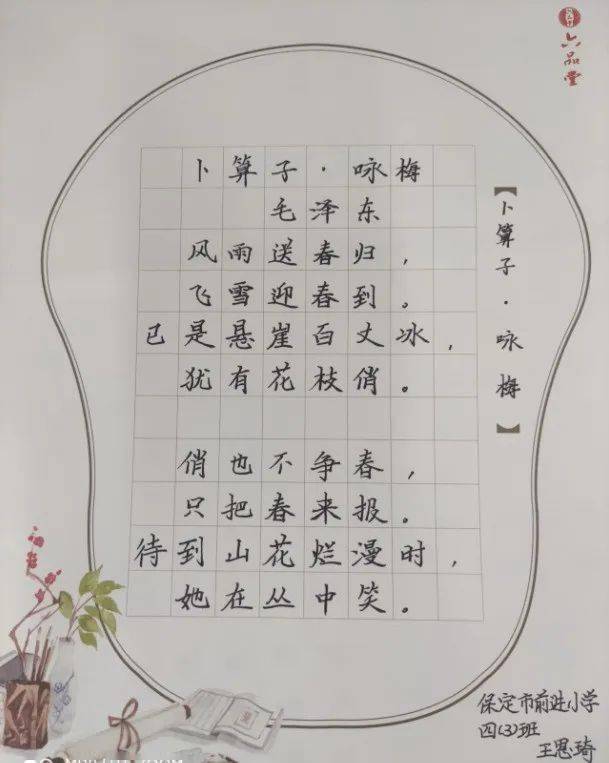 六品堂
卜算子·咏梅
毛泽东
风雨送春归,
飞雪迎春到。
已是悬崖百丈冰,
犹有花枝俏。
俏也不争春,
只把春来报。
待到山花烂漫时,
她在丛中笑。
【卜算子·咏梅】
保定市前进小学
四(3)班
王思琦